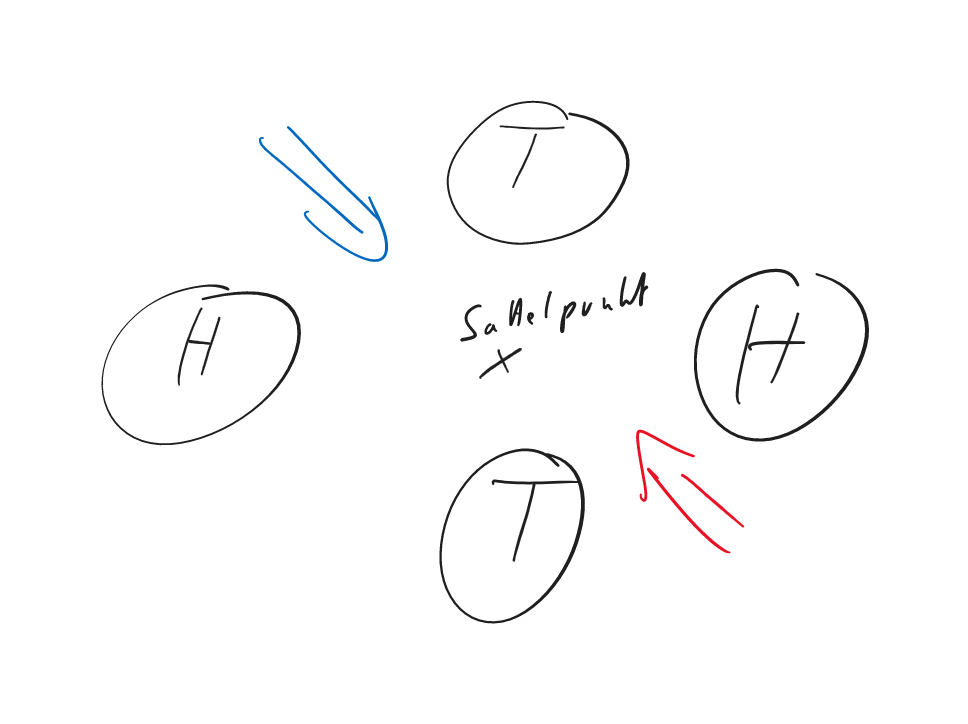 T
H
Sattelpunkt
H
T